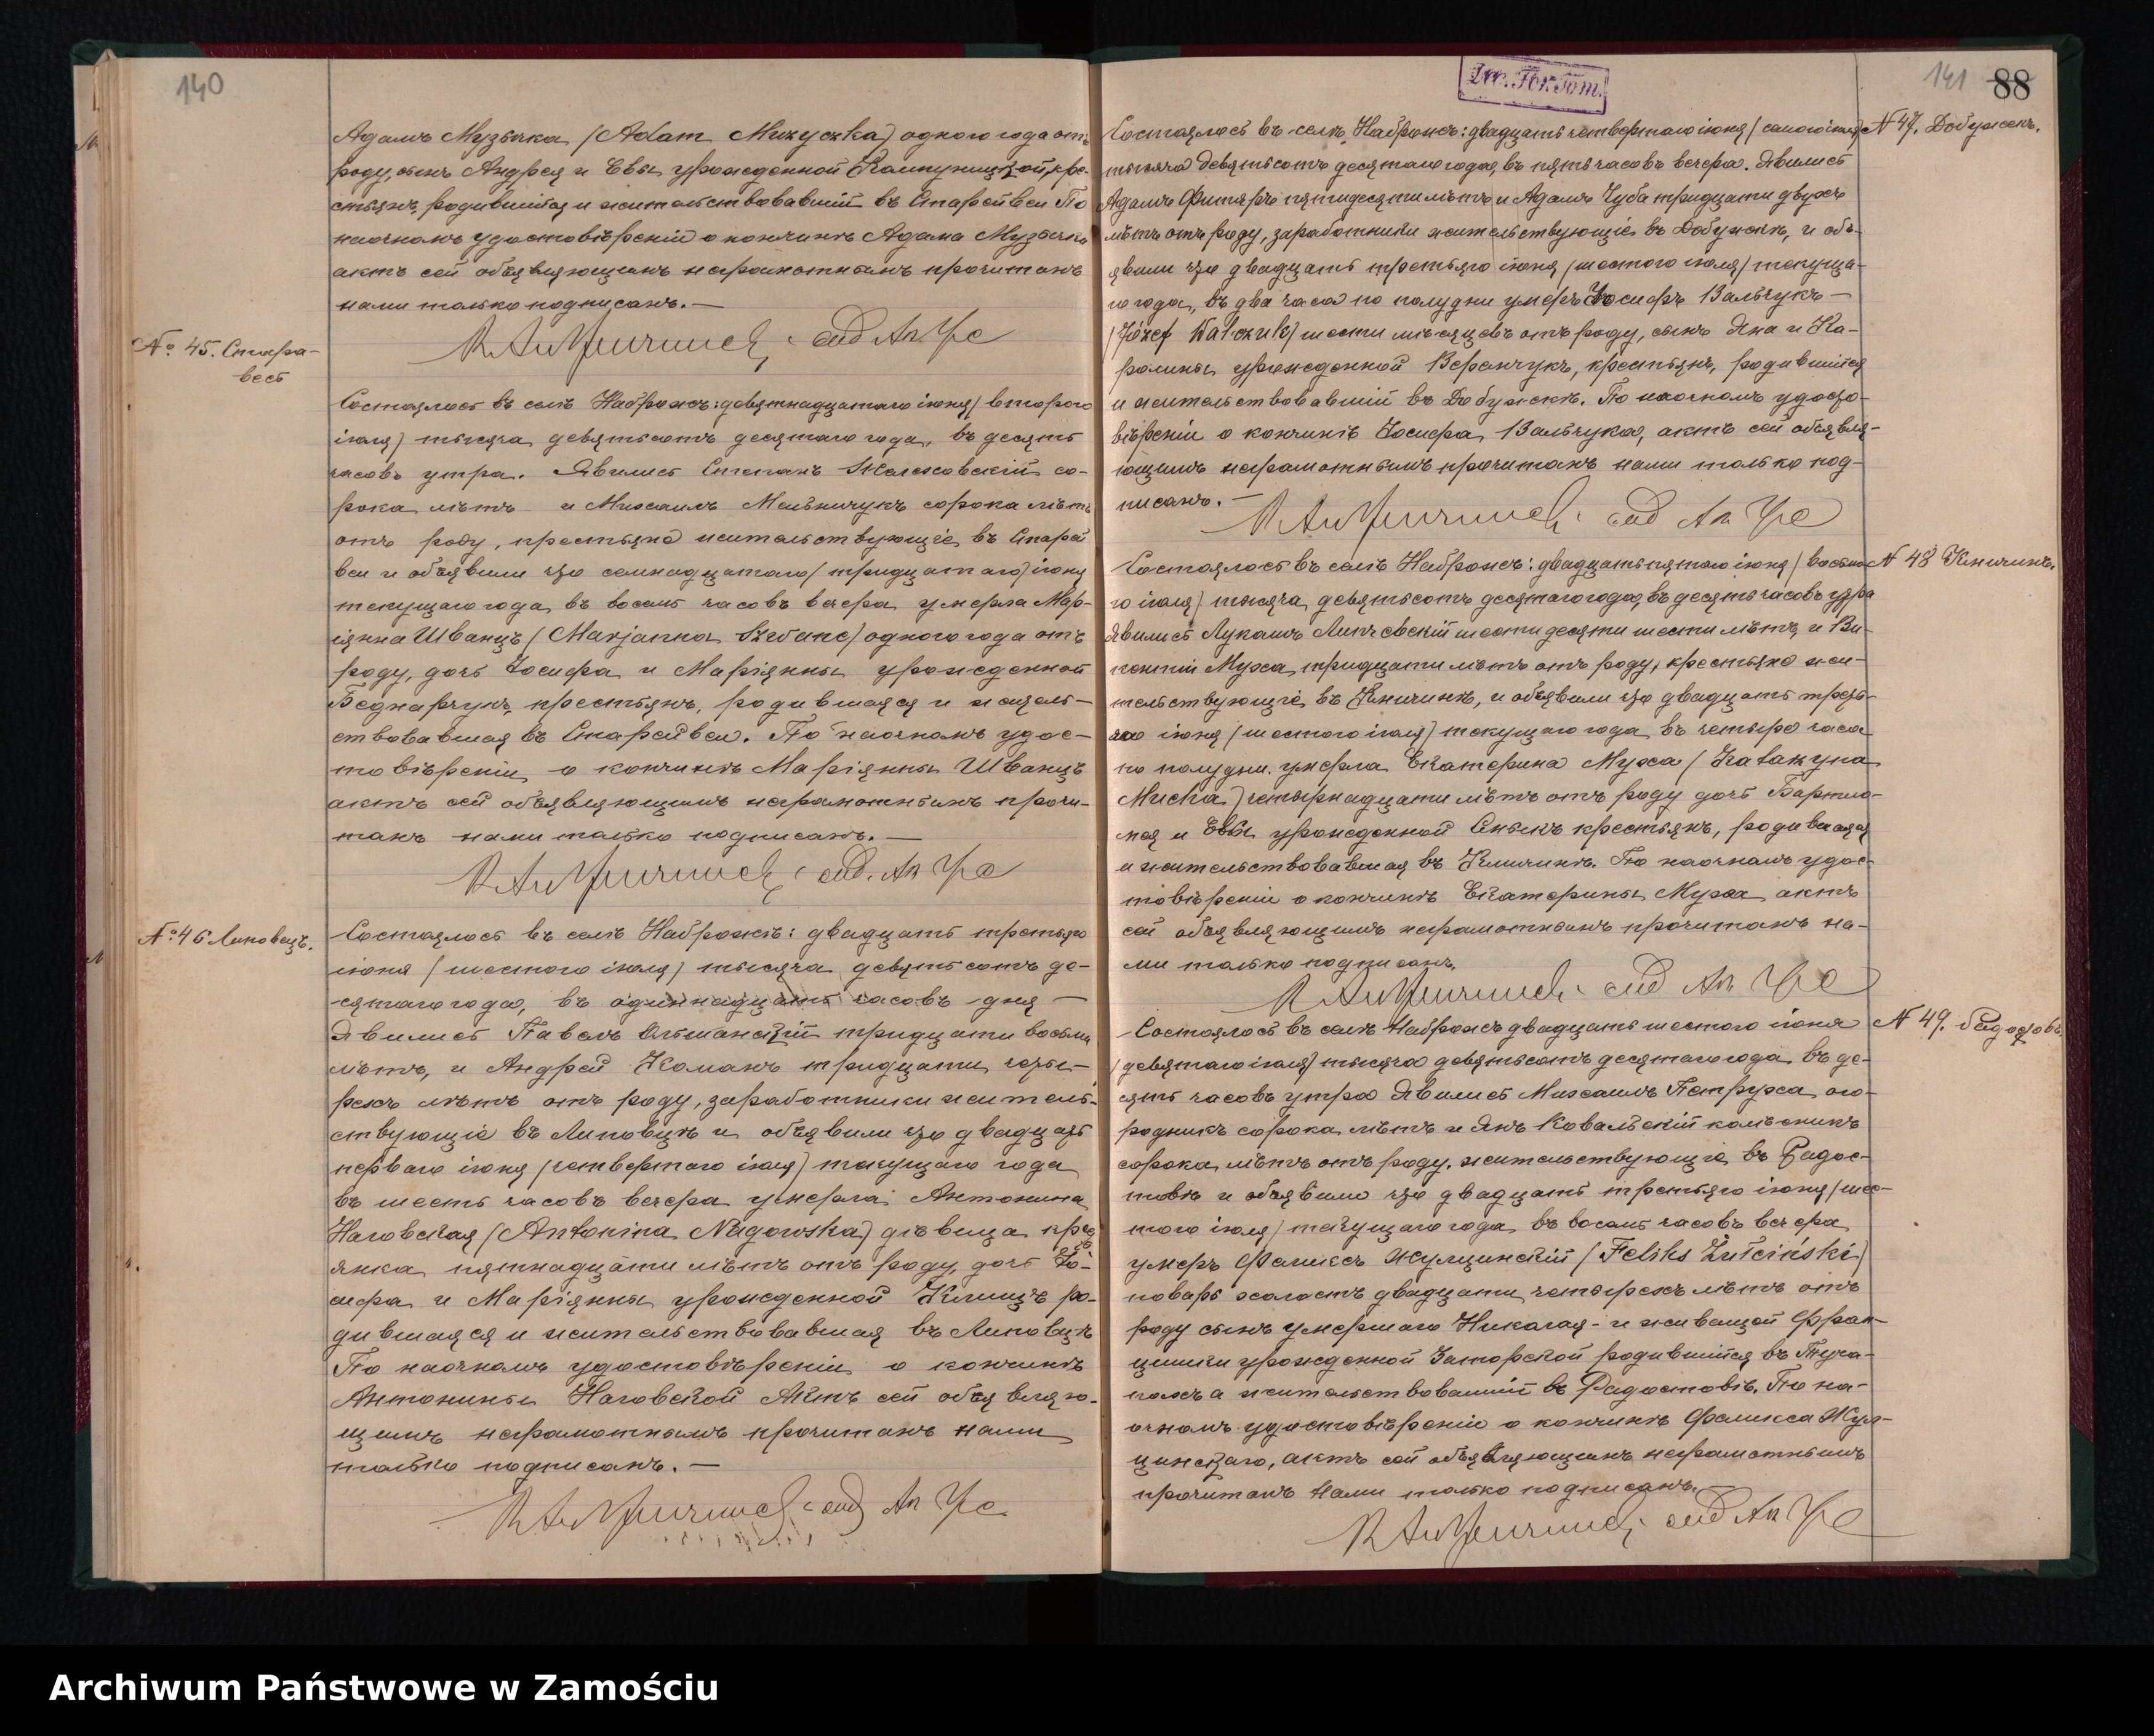 140
Адамъ Музычка (Adam Muzyczka) одного года отъ
роду, сынъ Андрея и Евы урожденной кре-
стьянъ, родившійся и жительствовавшій въ Старой вси По
наочномъ удостовѣреніи о кончинѣ Адама Музычка
актъ сей объявляющимъ неграмотнымъ прочитанъ
нами только подписанъ. —
№ 45. Стара-
весь
Состоялось въ селѣ Наброжъ: девятнадцатаго іюня (второго
іюля) тысяча девятьсотъ десятаго года, въ десять
часовъ утра. Явились Степанъ со-
рока лѣтъ и Михаилъ Мельничукъ сорока лѣтъ
отъ роду, крестьяне жительствующіе въ Старой
вси и объявили что семнадцатаго (тридцатаго) іюня
текущаго года въ восемь часовъ вечера умерла Мар-
іянна Шванцъ (Marjanna Szwanc) одного года отъ
роду, дочь Іосифа и Маріянны урожденной
Беднарчукъ, крестьянъ, родившаяся и житель-
ствовавшая въ Старойвси. По наочномъ удос-
товѣреніи о кончинѣ Маріянны Шванцъ
актъ сей объявляющимъ неграмотнымъ прочи-
танъ нами только подписанъ. —
№ 46 Липовецъ.
Состоялось въ селѣ Наброжѣ: двадцать третьяго
іюня (шестого іюля) тысяча девятьсотъ де-
сятаго года, въ одиннадцать часовъ дня —
Явились Павелъ Ольшанскій тридцати восьми
лѣтъ, и Андрей Команъ тридцати четы-
рехъ лѣтъ отъ роду, заработники житель-
ствующіе въ Липовцѣ и объявили что двадцать
перваго іюня (четвертаго іюля) текущаго года
въ шесть часовъ вечера умерла Антонина
Наговская (Antonina Nagowska) дѣвица крест
янка пятнадцати лѣтъ отъ роду, дочь Іо-
сифа и Маріянны урожденной Климцъ ро-
дившаяся и жительствовавшая въ Липовцѣ
По наочномъ удостовѣреніи о кончинѣ
Антонины Наговской Актъ сей объявляю-
щимъ неграмотнымъ прочитанъ нами
только подписанъ. —
141 88
№ 47. Добужекъ.
Состоялось въ селѣ Наброжъ: двадцать четвертаго іюня (седьмого іюля)
тысяча девятьсотъ десятаго года, въ пять часовъ вечера. Явились
Адамъ пятидесяти лѣтъ и Адамъ Чуба тридцати двухъ
лѣтъ отъ роду, заработники жительствующіе въ Добужкѣ, и объ-
явили что двадцать третьяго іюня (шестого іюля) текуща-
го года, въ два часа по полудни умеръ Іосифъ Вальчукъ —
(Józef Walczuk) шести мѣсяцевъ отъ роду, сынъ Яна и Ка-
ролины урожденной Веранчукъ, крестьянъ, родившійся
и жительствовавшій въ Добужкѣ. По наочномъ удосто-
вѣреніи о кончинѣ Іосифа Вальчука, актъ сей объявля-
ющимъ неграмотнымъ прочитанъ нами только под-
писанъ. —
№ 48 Кмичинъ.
Состоялось въ селѣ Наброжъ: двадцать пятаго іюня (восьмо
го іюля) тысяча девятьсотъ десятаго года, въ десять часовъ утра
Явились Лукашъ шестидесяти шести лѣтъ, и Ви-
кентій Муха тридцати лѣтъ отъ роду, крестьяне жи-
тельствующіе въ Кмичинѣ, и объявили что двадцать треть-
яго іюня (шестого іюля) текущаго года въ четыре часа
по полудни. умерла Екатерина Муха (Katarzyna
Mucha) четырнадцати лѣтъ отъ роду дочь Бартло-
мея и Евы урожденной крестьянъ, родившаяся
и жительствовавшая въ Кмичинѣ. По наочномъ удос-
товѣреніи о кончинѣ Екатерины Муха актъ
сей объявляющимъ неграмотнымъ прочитанъ на-
ми только подписанъ.
№ 49. Радостовъ
Состоялось въ селѣ Наброжъ двадцать шестого іюня
(девятаго іюля) тысяча девятьсотъ десятаго года въ де-
сять часовъ утра Явились Михаилъ Петруха ого-
родникъ сорока лѣтъ и Янъ Ковальскій колесникъ
сорока лѣтъ отъ роду, жительствующіе въ Радос-
товѣ и объявили что двадцать третьяго іюня (шес-
того іюля) текущаго года въ восемь часовъ вечера
умеръ Феликсъ Жулцинскій (Feliks Żułciński)
поваръ холостъ двадцати четырехъ лѣтъ отъ
роду сынъ умершаго Николая и живущей Фран-
цишки урожденной Заторской родившійся въ Туча-
пахъ а жительствовавшій въ Радостовѣ. По на-
очномъ удостовѣреніи о кончинѣ Феликса Жул-
цинскаго, актъ сей объявляющимъ неграмотнымъ
прочитанъ нами только подписанъ.
Archiwum Państwowe w Zamościu